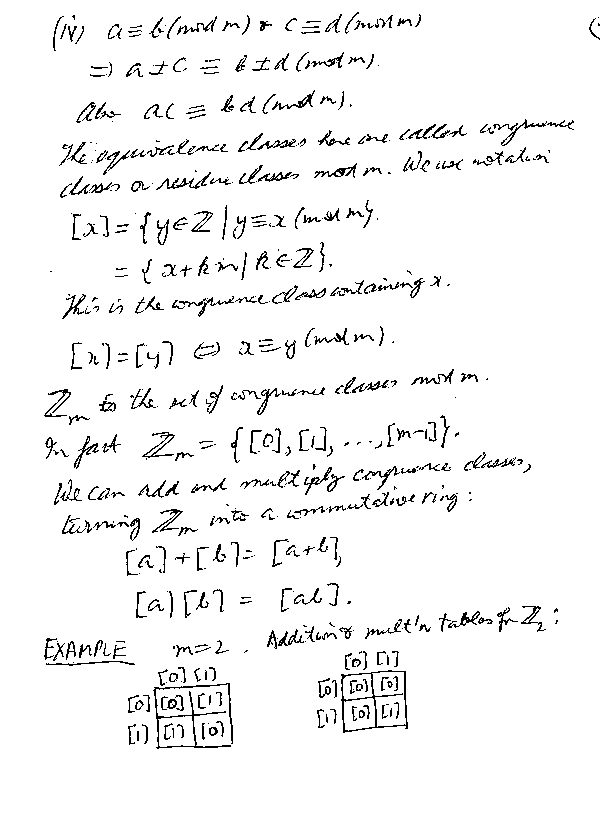 (iv) a ≡ b (mod m) & c ≡ d (mod m)
⇒ a ± c ≡ b ± d (mod m).
Also ac ≡ bd (mod m).
The equivalence classes here are called congruence
classes or residue classes mod m. We use notation
[x] = {y ∈ ℤ | y ≡ x (mod m)}.
= {x + km | k ∈ ℤ}.
This is the congruence class containing x.
[x] = [y] ⇔ x ≡ y (mod m).
ℤm is the set of congruence classes mod m.
In fact ℤm = {[0], [1], ..., [m-1]}.
We can add and multiply congruence classes,
turning ℤm into a commutative ring:
[a] + [b] = [a+b],
[a][b] = [ab].
EXAMPLE m = 2. Addition & mult'n tables for ℤ2:
[0] [1]
[0] [0] [1]
[1] [1] [0]
[0] [1]
[0] [0] [0]
[1] [0] [1]